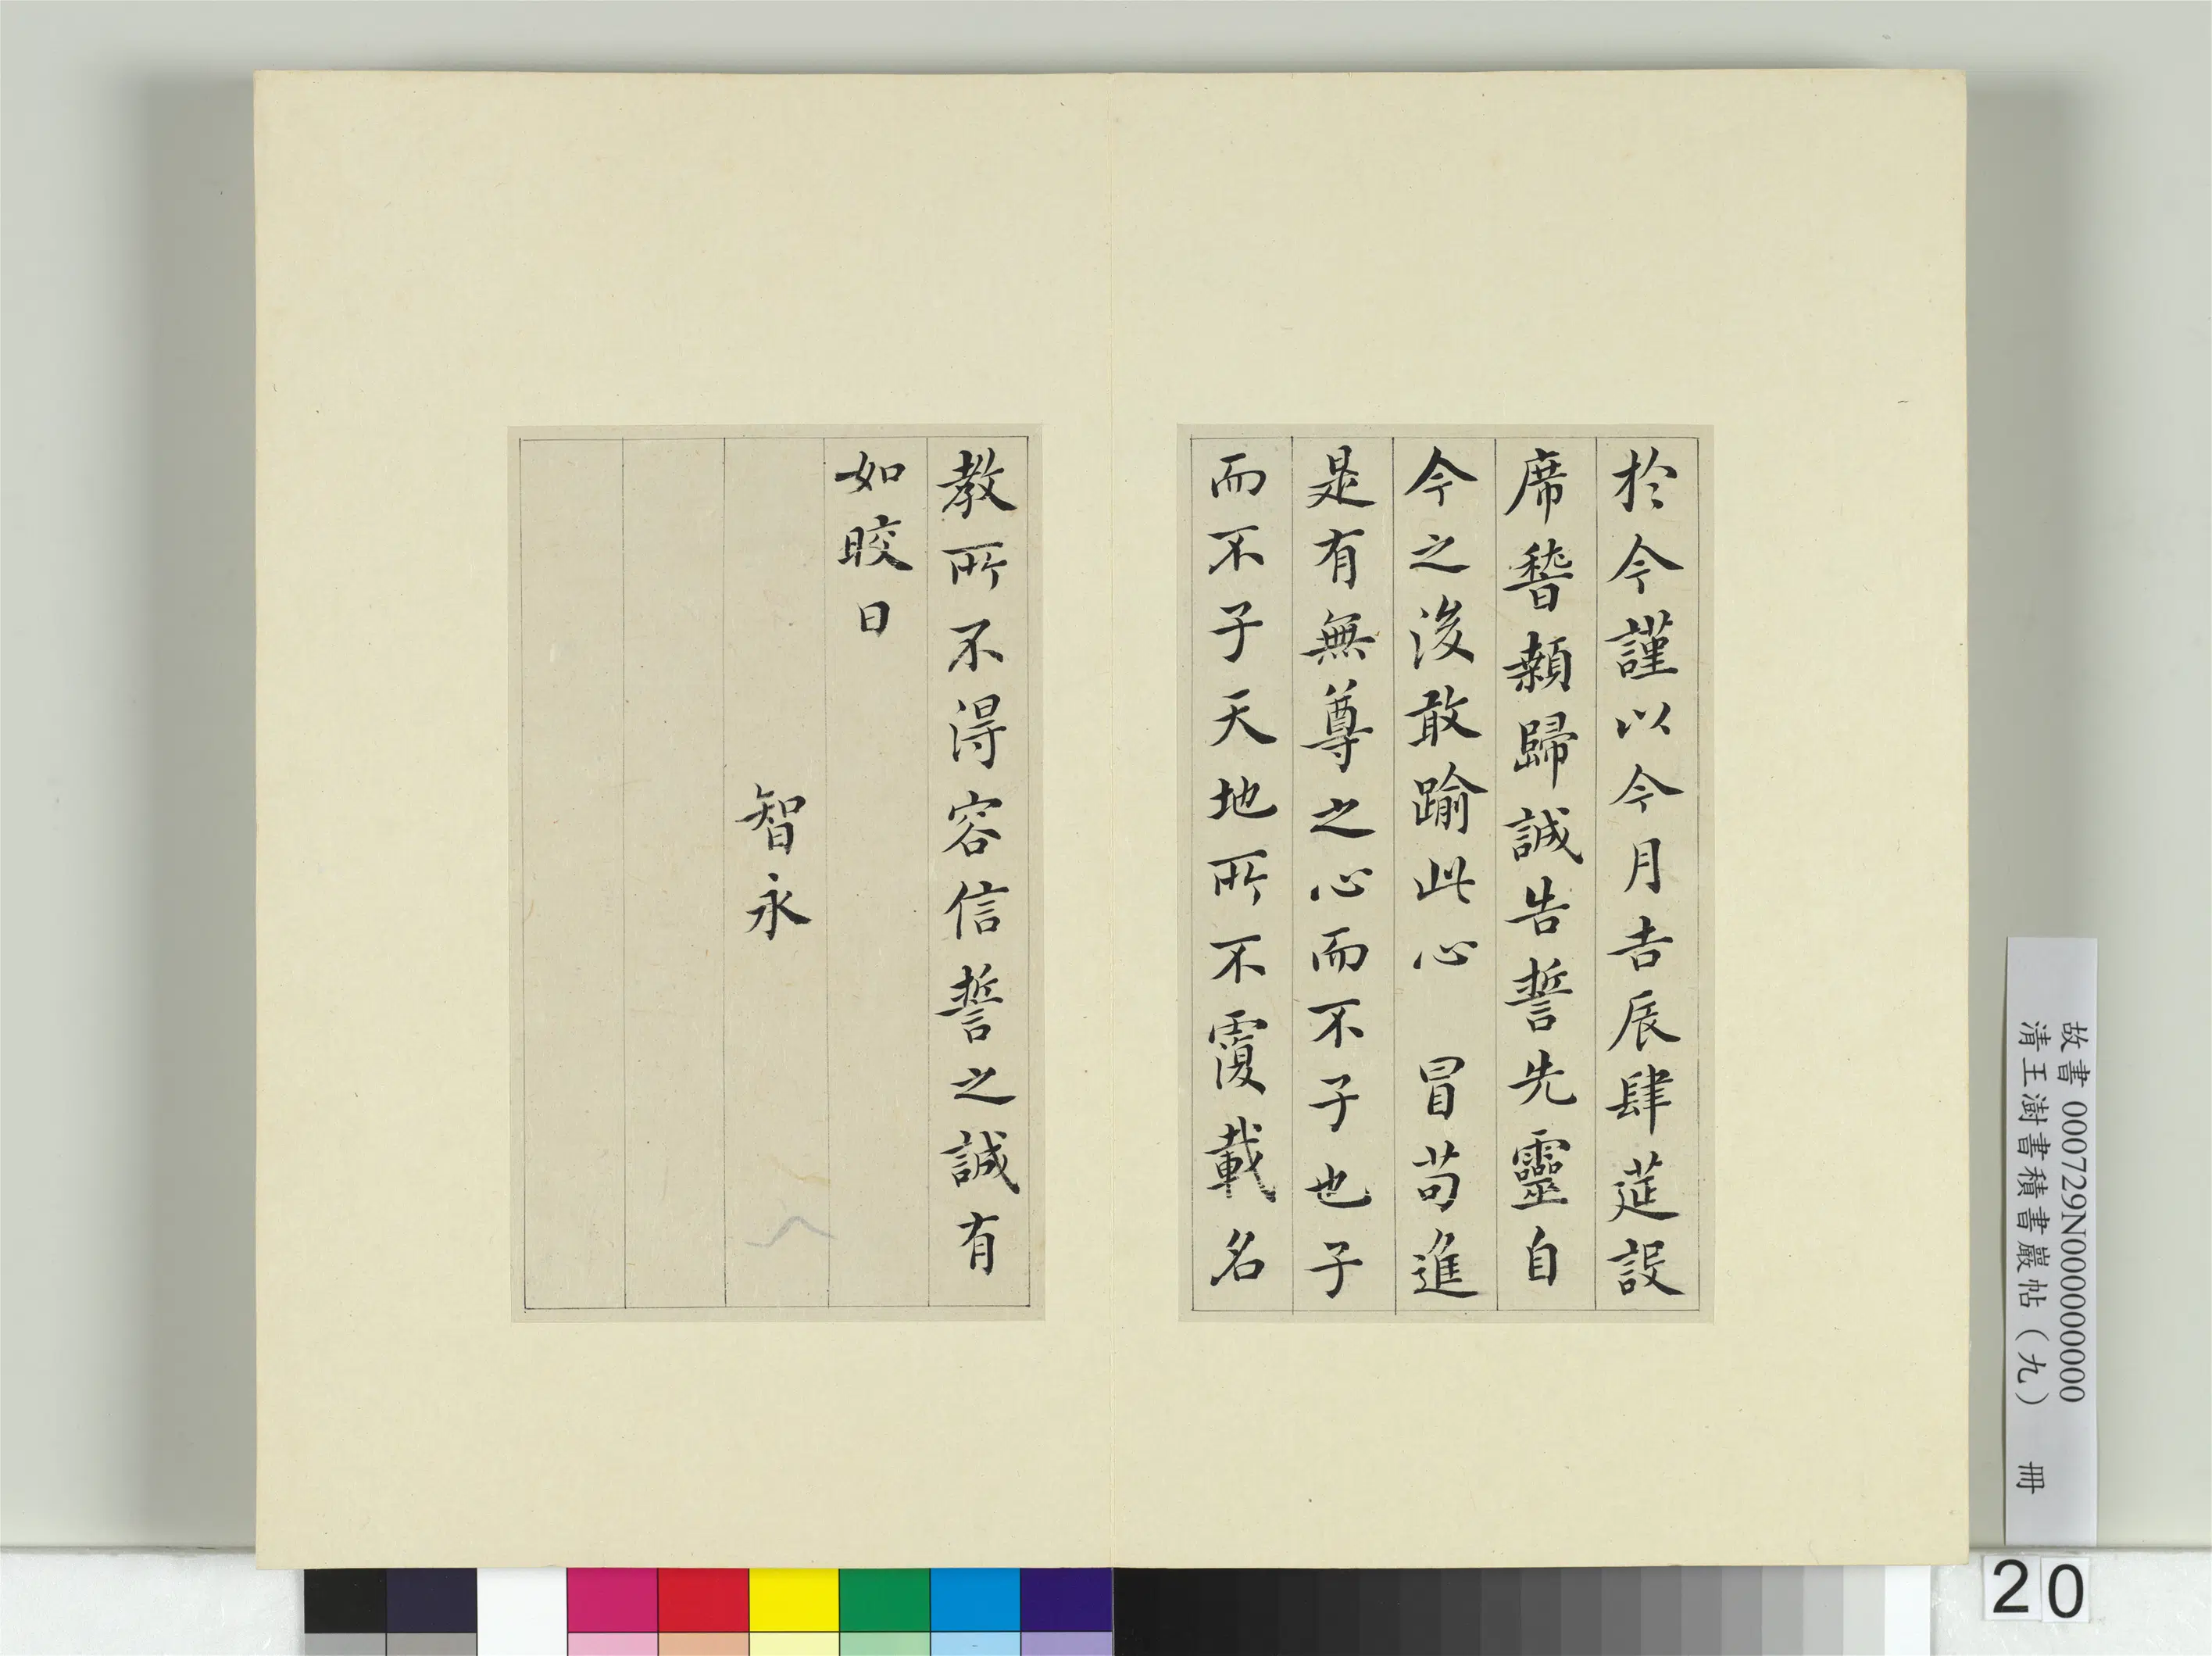 於今謹以今月吉辰肆莚設
席稽顙歸誠告誓先靈自
今之後敢踰此心 冒苟進
是有無尊之心而不子也子
而不子天地所不覆載名
教所不得容信誓之誠有
如晈日
智永
故書 000729N000000000
清王澍書積書巖帖（九） 冊
20